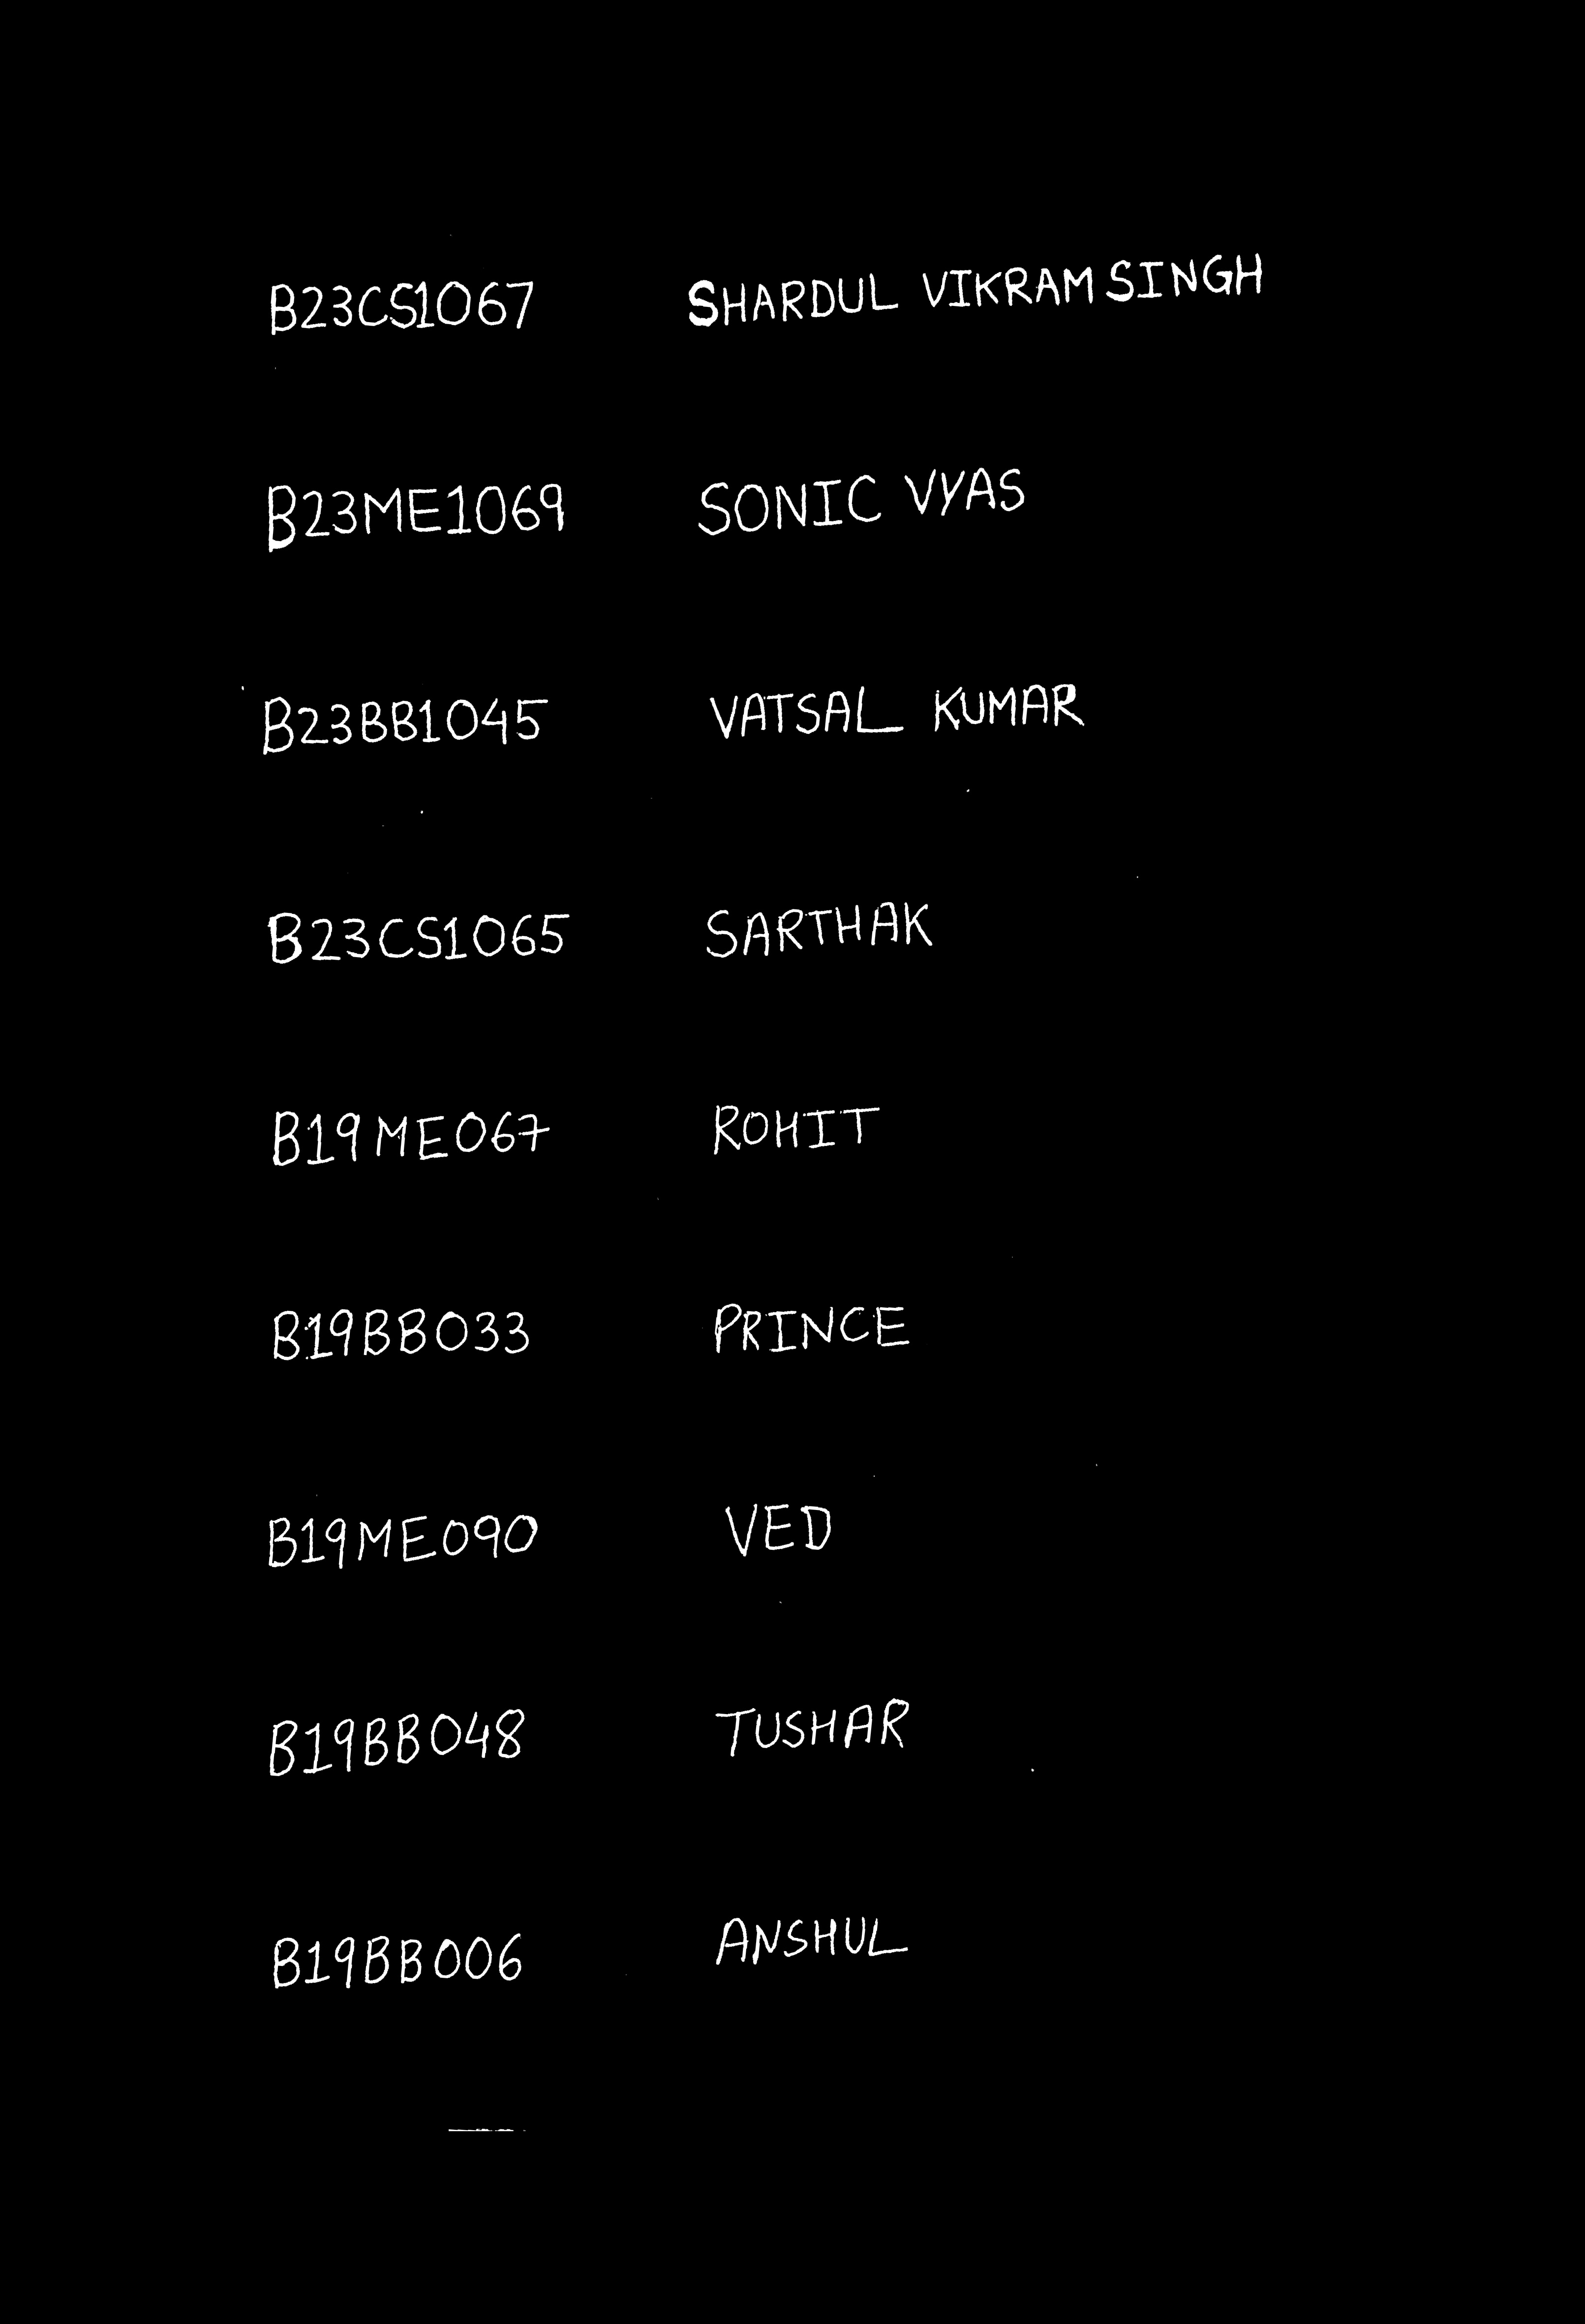 B23CS1067 SHARDUL VIKRAM SINGH
B23ME1069 SONIC VYAS
B23BB1045 VATSAL KUMAR
B23CS1065 SARTHAK
B19ME067 ROHIT
B19BB033 PRINCE
B19ME090 VED
B19BB048 TUSHAR
B19BB006 ANSHUL